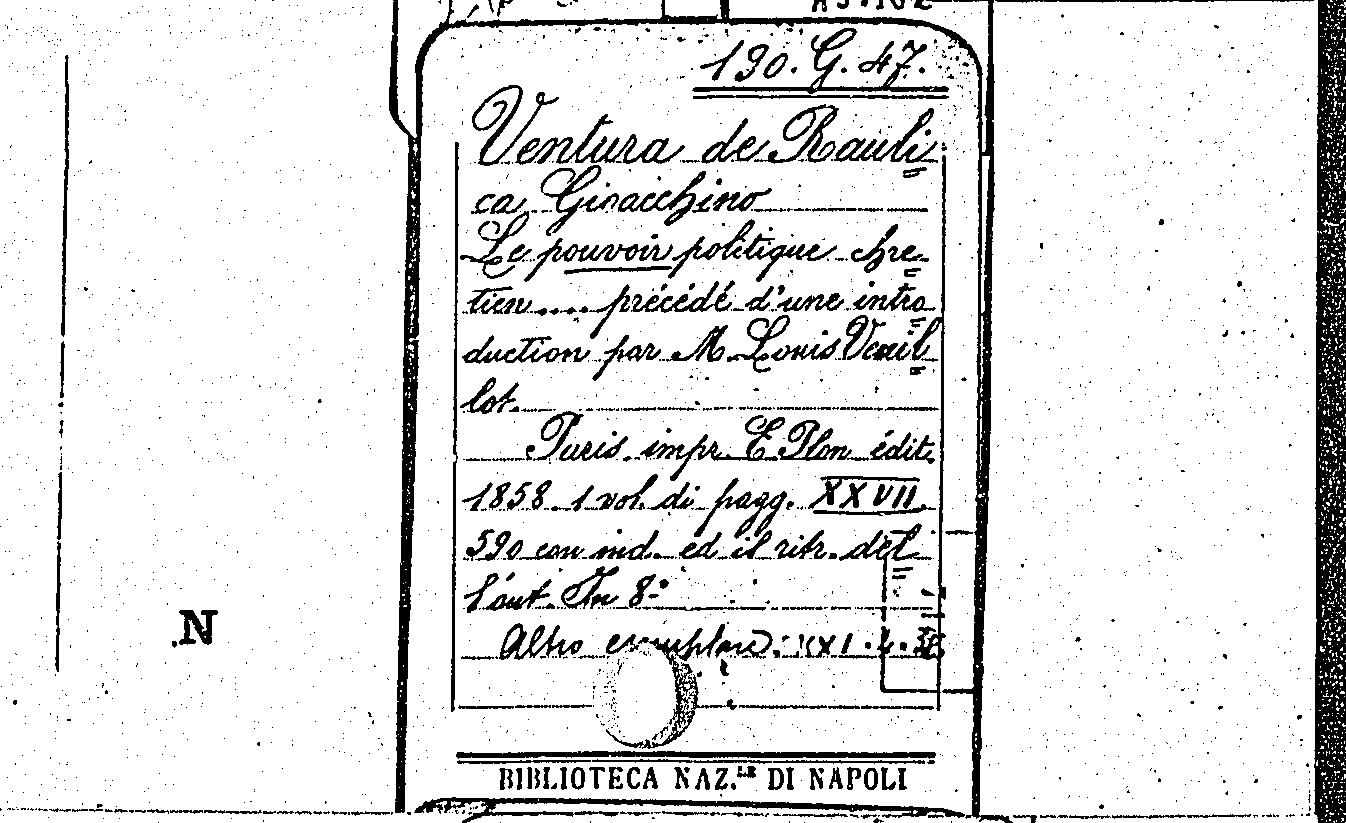 190. G. 47.
Ventura de Rauli=
ca Gioacchino
Le pouvoir politique chre=
tien.... précédé d'une intro=
duction par M. Louis Veuil=
lot.
Paris. impr. E. Plon édit.
1858. 1 vol. di pagg. XXVII.
590 con ind. ed il ritr. del=
l'aut. In 8º
Altro esemplare: XXI. 4.
N
BIBLIOTECA NAZ.LE DI NAPOLI